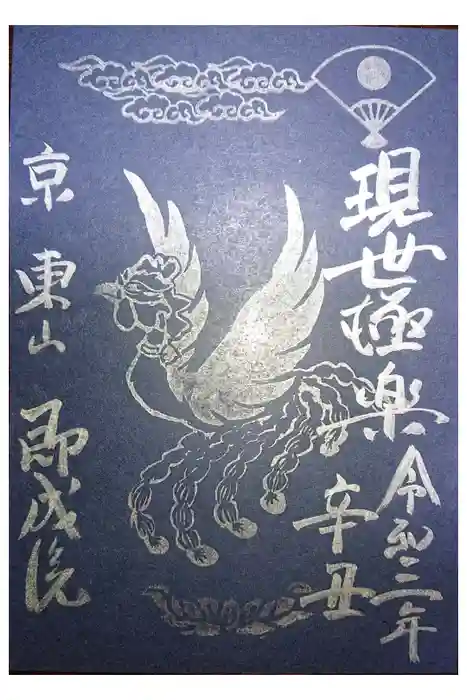 現世極楽
令和三年
辛丑
京 東山
即成院